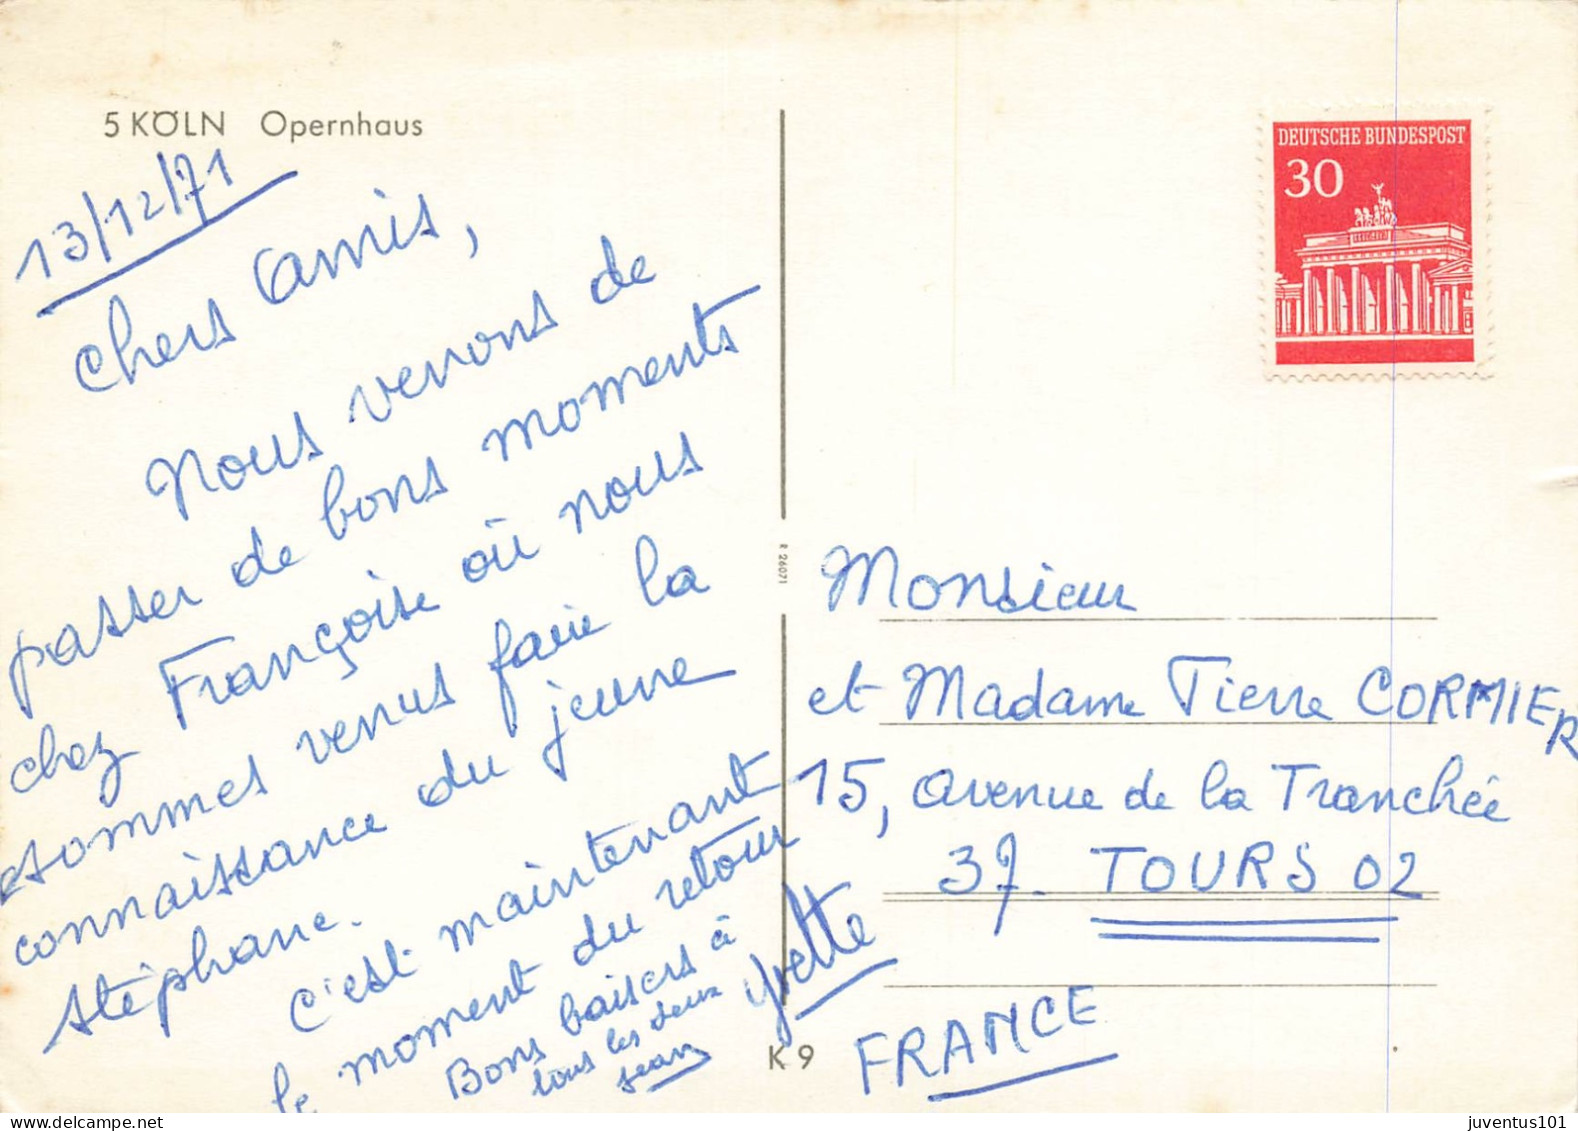 5 KÖLN Opernhaus
13/12/71
Chers Amis,
Nous venons de
passer de bons moments
chez Françoise où nous
sommes venus faire la
connaissance du jeune
Stéphane.
C'est maintenant
le moment du retour
Bons baisers à
tous les deux
Jean
Yvette
DEUTSCHE BUNDESPOST
30
R 26071
K 9
Monsieur
et Madame Pierre CORMIER
15, avenue de la Tranchée
37. TOURS 02
FRANCE
delcampe.net
juventus101